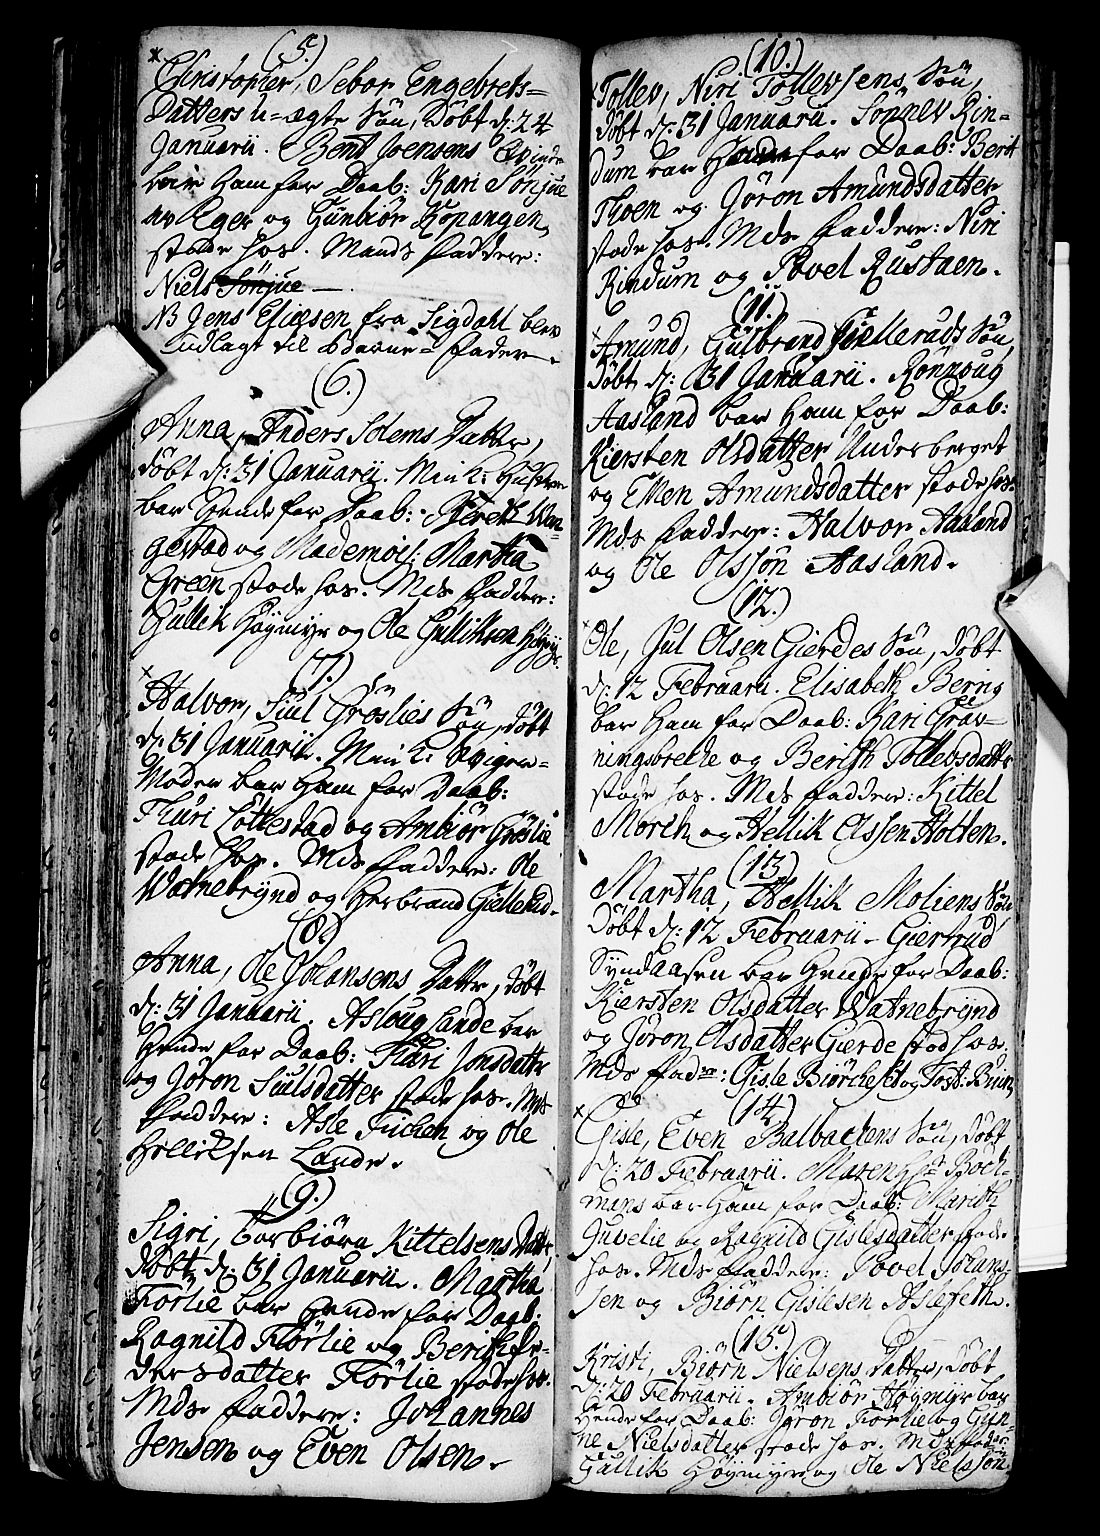 (5.)
Christopher, Sebor Engebrets=
Datters u=ægte Søn, Døbt d: 24
Januarii. Bent Joensens Qvinde
bar Ham for Daab: Kari Sønjue
av Eger og Gunbiør Kopangen
stode hos. Mands Faddere:
Niels Sønjue
NB Jens Eliæsen fra Sigdahl blev
udlagt til Barne=Fader.
(6.)
Anna, Anders Solems Datter,
døbt d: 31 Januarii. Min K: Hustrue
bar Hende for Daab: Bereth Wan-
gestad og Mademois: Martha
Green stode hos. Mds Faddere:
Gullik Høymyr og Ole Gulliksøn Høymyr.
(7.)
Halvor, Siul Grøslies Søn, døbt
d: 31 Januarii. Min K: Sviger=
Moder bar Ham for Daab:
Thuri Lottestad og Ambiør Grøslie
stode hos. Mds Faddere: Ole
Watnebrynd og Herbrand Giellerud.
(8.)
Anna, Ole Johansens Datter, døbt
d: 31 Januarii. Asloug Lande bar
Hende for Daab: Thuri Jonsdatter
og Jøron Siulsdatter stode hos. Mds
Faddere: Asle Fuchen og Ole
Helliksen Lande.
(9.)
Sigri, Torbiørn Kittelsens Datter,
Døbt d: 31 Januarii. Martha
Førlie bar Hende for Daab:
Ragnild Førlie og Berith Pe-
dersdatter Førlie stode hos.
Mds Faddere: Johannes
Jensen og Even Olsen.
(10.)
Tollev, Niri Tollevsens Søn,
døbt d: 31 Januarii. Sønnev Rin=
dum bar Ham for Daab: Berit
Thoen og Jøron Amundsdatter
stode hos. Mds Faddere: Niri
Rindum og Povel Rustaen.
(11.)
Amund, Gulbrand Giellerads Søn,
Døbt d: 31 Januarii. Rønnoug
Aasland bar Ham for Daab:
Kiersten Olsdatter Underberget
og Ellen Amundsdatter stode hos.
Mds Faddere: Halvor Aasland
og Ole Olssøn Aasland.
(12.)
Ole, Jul Olsen Gierdes Søn, døbt
d: 12 Februarii. Elisabeth Bering
bar Ham for Daab: Kari Grav-
ningsbreche og Berith Tollevsdatter
stode hos. Mds Faddere: Kittel
Morch og Hellik Olssen Holten.
(13.)
Martha, Hellik Moliens Søn,
Døbt d: 12 Februarii. Giertrud
Syndaasen bar Hende for Daab:
Kiersten Olsdatter Watnebrynd
og Jøron Olsdatter Gierde stod hos.
Mds Fadre: Gisle Biørchefet og Tost: Bruun.
(14.)
Gisle, Even Balbachens Søn, døbt
d: 20 Februarii. Maren Boch-
mans bar Ham for Daab: Marith
Juvelie og Ragnild Gislesdatter stode
hos. Mds Faddere: Povel Johans-
sen og Biørn Gislesen Aslefeth.
(15.)
Kristi, Biørn Nielsens Datter, døbt
d: 20 Februarii. Ambiør Høymyr bar
Hende for Daab: Jøron Førlie og Gun-
ne Nielsdatter stode hos. Mds Faddere:
Gullik Høymyr og Ole Nielssøn.